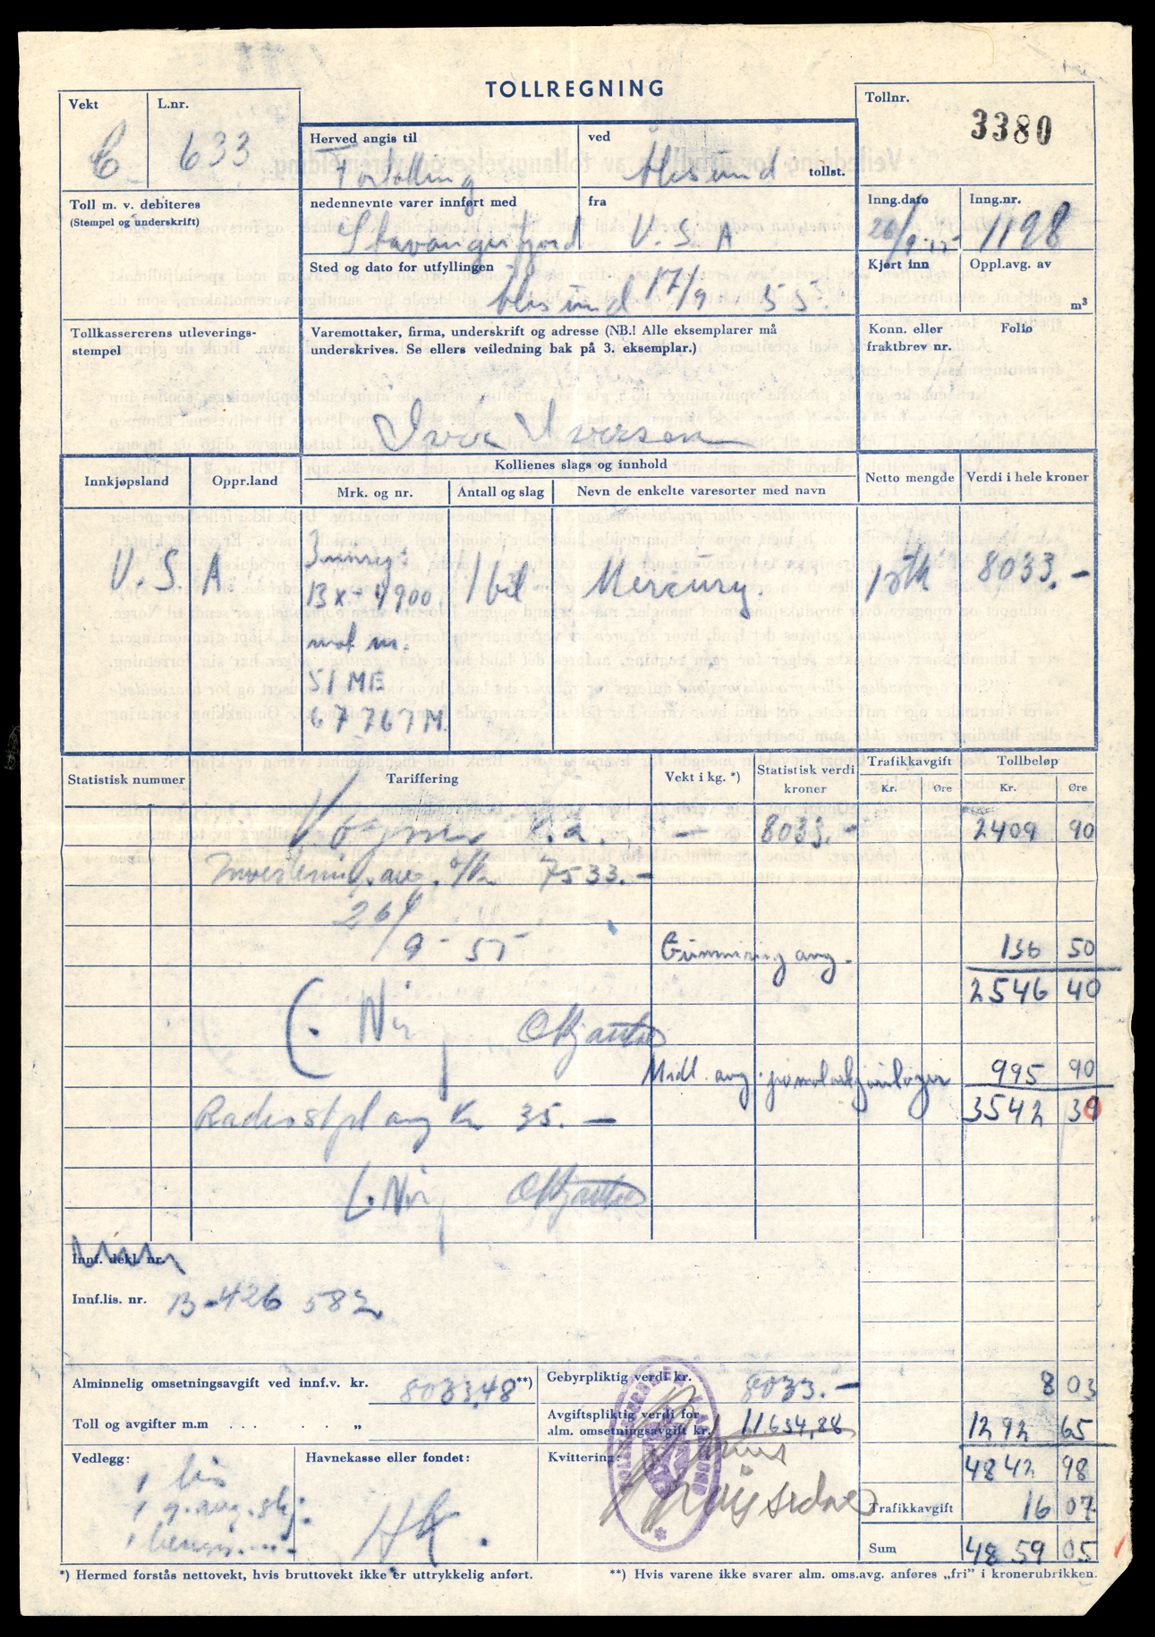 TOLLREGNING
Vekt
L.nr.
633
Tollnr.
3380
Herved angis til
Fortolling
ved
Ålesund tollst.
Toll m. v. debiteres
(Stempel og underskrift)
nedennevnte varer innført med
Stavangerfjord
fra
U. S. A
Inng.dato
26/9-55
Inng.nr.
1198
Sted og dato for utfyllingen
Ålesund 17/9 55.
Kjørt inn
Oppl.avg. av
m³
Tollkassererens utleverings-
stempel
Varemottaker, firma, underskrift og adresse (NB.! Alle eksemplarer må
underskrives. Se ellers veiledning bak på 3. eksemplar.)
Konn. eller
fraktbrev nr.
Folio
Ivar Iversen
Innkjøpsland
Oppr.land
Kollienes slags og innhold
Mrk. og nr.
Antall og slag
Nevn de enkelte varesorter med navn
Netto mengde
Verdi i hele kroner
U. S. A
13 x - 4900
mot nr.
51 ME
67767 M.
1 bil
Mercury.
1 stk
8033.-
Statistisk nummer
Tariffering
Vekt i kg. *)
Statistisk verdi
kroner
Trafikkavgift
Kr.
Øre
Tollbeløp
Kr.
Øre
Vogner
—
8033.-
2409 90
7533.-
26/9-55
Gummiring avg.
136 50
2546 40
995 90
3542 30
avg Kr 35.—
Innf. dekl. nr.
Innf.lis. nr. B-426 582
Alminnelig omsetningsavgift ved innf.v. kr. 8033,48 **)
Gebyrpliktig verdi kr. 8033.—
8 03
Toll og avgifter m.m . . . . . „
Avgiftspliktig verdi for
alm. omsetningsavgift kr. 11634,28
1292 65
Vedlegg:
1 lis
Havnekasse eller fondet:
Kvittering:
4842 98
Trafikkavgift 16 07
Sum 4859 05
*) Hermed forstås nettovekt, hvis bruttovekt ikke er uttrykkelig anført.
**) Hvis varene ikke svarer alm. oms.avg. anføres „fri” i kronerubrikken.